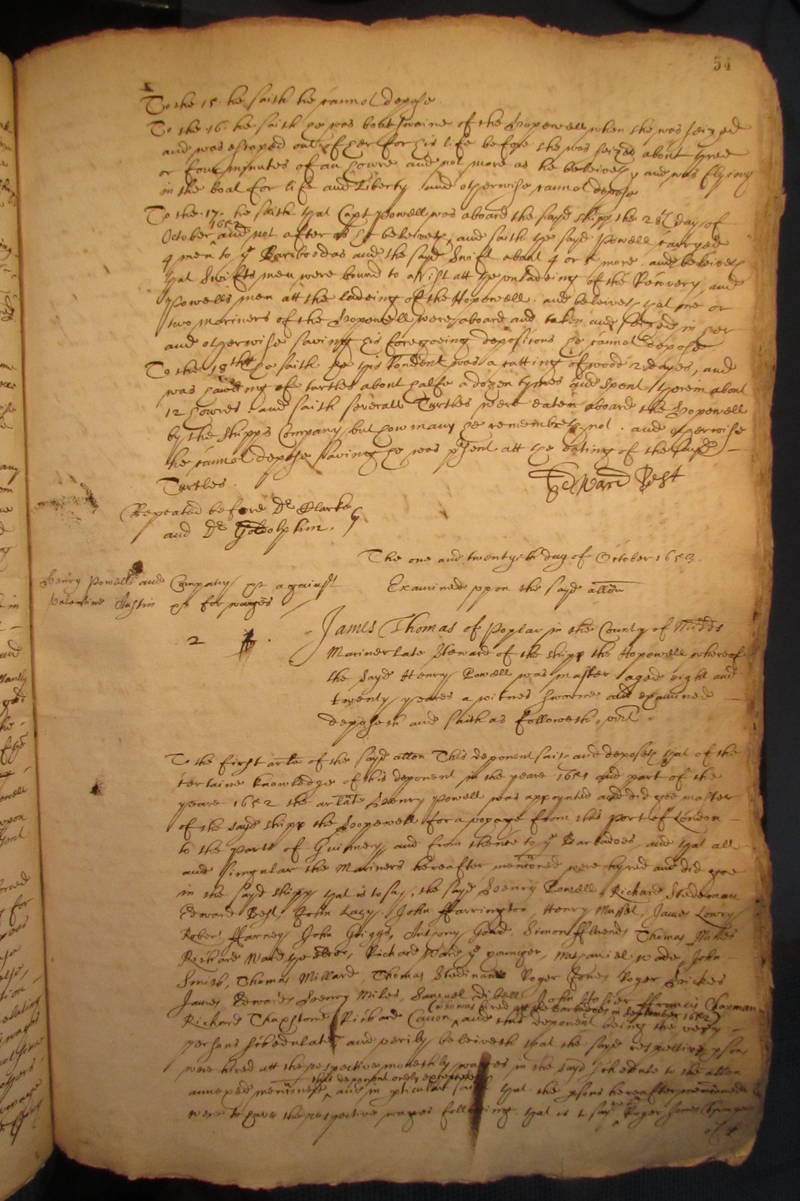 54
To the 15. he saith he cannot depose
To the 16. he saith he was boatswaine of the Hopewell when she was seized
and was escaped out of her for his life before she was seized about three
or four minutes of an howre and not more as he beleives, and was flying
in the boat for life and liberty and otherwise cannot depose
To the 17. he saith that Capt Powell was aboard the sayd shipp the 26th day of
October 1652 and not after as he beleives, and saith the sayd Powell carryed
4 men to ye Barbadoes and the sayd Swift about 4 or more and beleives
that Swifts men were bound to assist att the unladeing of the and
Powells men att the ladeing of the Hopewell. and beleives that one or
two mariners of the Hopewell were aboard and taken and seized in her
and otherwise saving his foregoeing depositions he cannot depose
To the 18th he saith he this rendent was a cutting of wood 2 dayes, and
was of turtles about halfe a dozen tymes and spent therein about
12 howres. and saith severall Turtles were eaten aboard the Hopewell
by the shipps Company but how many he remembers not. and otherwise
he cannot depose saving he was present att the eating of the sayd
Turtles.
Edward Best
Repeated before Dr Clarke
and Dr Godolphin.
The one and twentyeth day of October 1653.
Henry Powell and Company against
for wages
Examined upon the sayd allon
2
James Thomas of Poplar in the County of Midds
Mariner late Steward of the shipp the Hopewell whereof
the sayd Henry Powell was master aged eight and
twenty yeares a witnes sworne and examined
deposeth and saith as followeth, vizt
To the first arle of the sayd allon This deponent saith and deposeth that of the
certaine knowledge of this deponent in the yeare 1651 and part of the
yeare 1652 the arlate Henry Powell was appoynted and did goe master
of the sayd shipp the Hopewell for a voyage from this Port of London
to the parts of Guinney and from thence to ye Barbadoes, and that all
and singular the Mariners hereafter menconed were hyred and did goe
in the sayd shipp that is to say, the sayd Henry Powell Richard Stedeman
Edward Best, John Lacy John ffarrington Henry Mussel, James Lowry
Robert ffarney John Griggs, Anthony Goad Simon Thomas
Richard Wade the elder, Richard Wade ye younger, Nathaniel Wade, John
Smith, Thomas Millard, Thomas Stedman Roger Jones Roger
James Edwards Henry Miles, Samuel John ffrancis Chapman
Richard Thaxstone Richard Canon hired att the Barbadoes in September 1652 and this deponent being the very
persons schedulate, and verily beleiveth that the sayd respective psons
were hired att the respective monethly wages in the sayd schedule to the allon
annexed menconed, this deponent only excepted and in pticular saith that the psons hereafter menconed
were to have the respective wages following that is to say Roger Jones